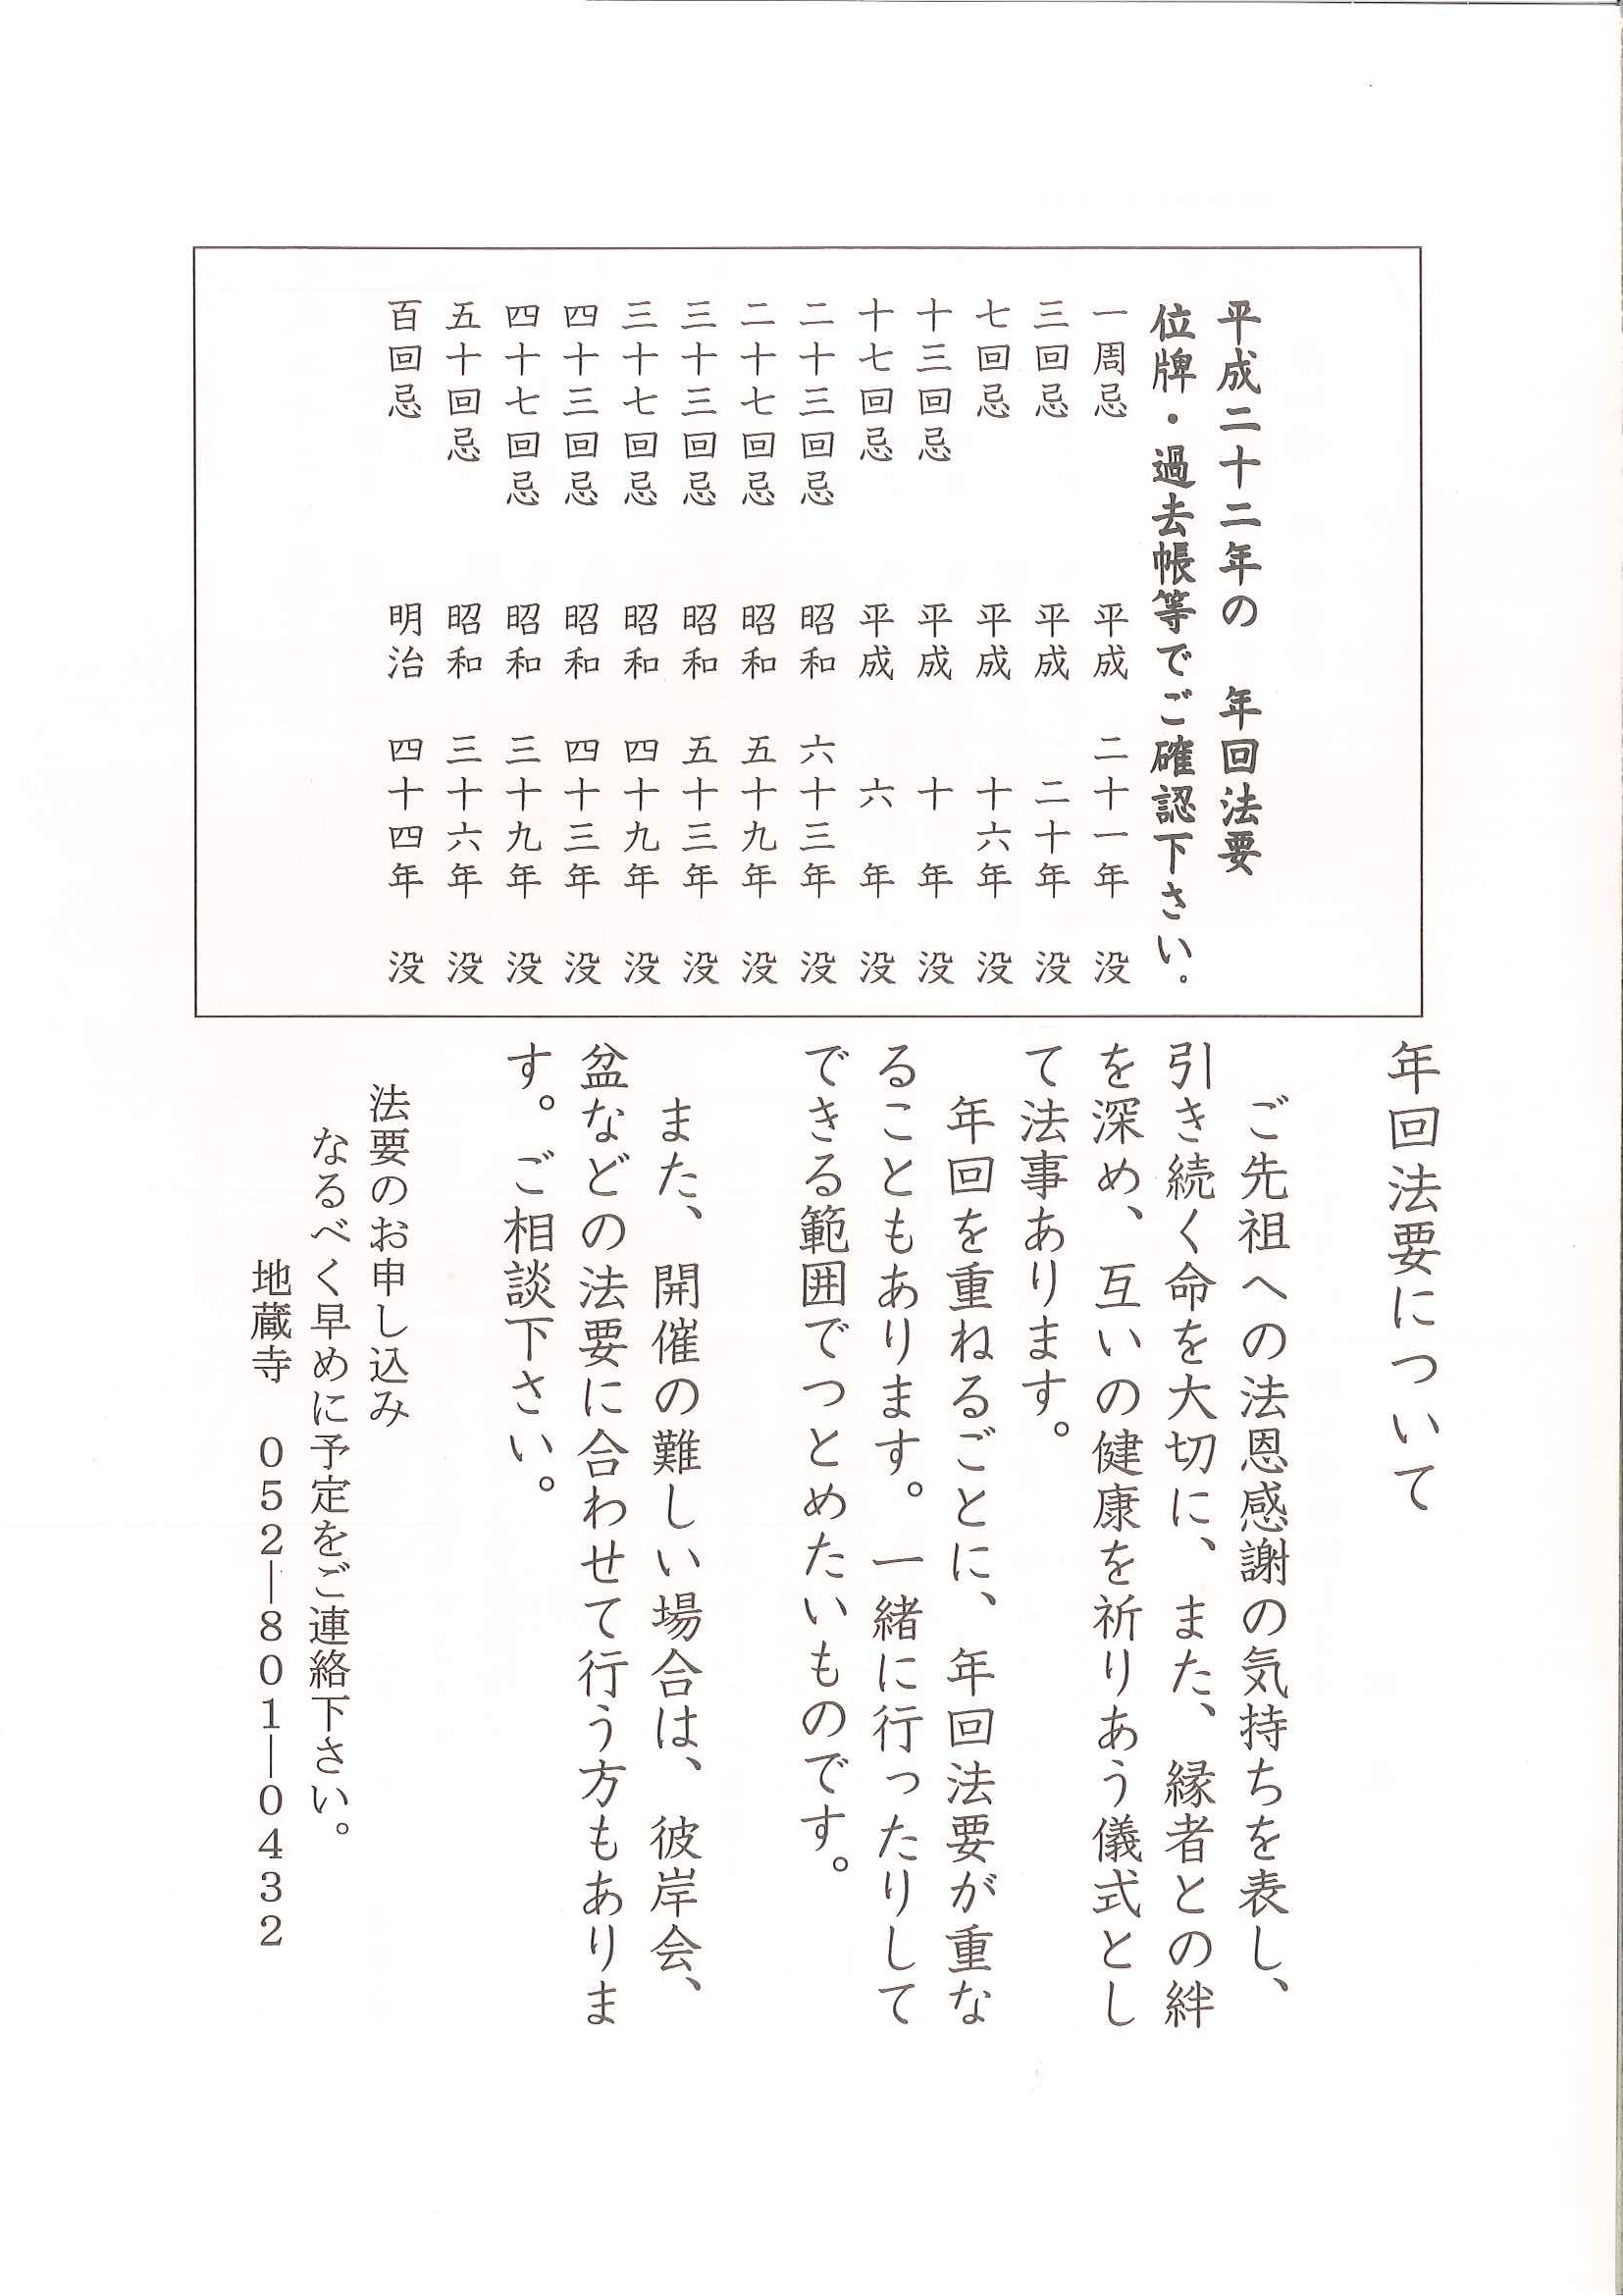 平成二十二年の　年回法要
位牌・過去帳等でご確認下さい。
一周忌　平成　二十一年　没
三回忌　平成　二十年　没
七回忌　平成　十六年　没
十三回忌　平成　十　年　没
十七回忌　平成　六　年　没
二十三回忌　昭和　六十三年　没
二十七回忌　昭和　五十九年　没
三十三回忌　昭和　五十三年　没
三十七回忌　昭和　四十九年　没
四十三回忌　昭和　四十三年　没
四十七回忌　昭和　三十九年　没
五十回忌　昭和　三十六年　没
百回忌　明治　四十四年　没
年回法要について
ご先祖への法恩感謝の気持ちを表し、
引き続く命を大切に、また、縁者との絆
を深め、互いの健康を祈りあう儀式とし
て法事あります。
年回を重ねるごとに、年回法要が重な
ることもあります。一緒に行ったりして
できる範囲でつとめたいものです。
また、開催の難しい場合は、彼岸会、
盆などの法要に合わせて行う方もありま
す。ご相談下さい。
法要のお申し込み
なるべく早めに予定をご連絡下さい。
地蔵寺　０５２―８０１―０４３２